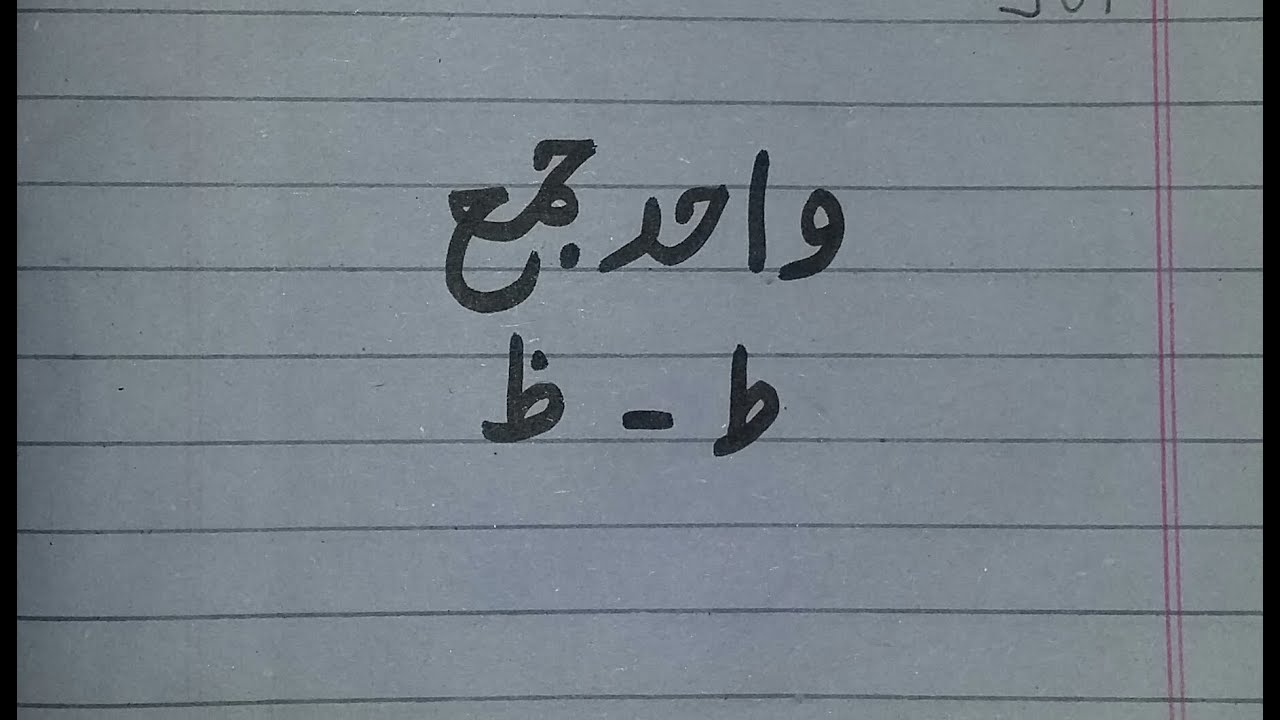 واحد جمع
ط - ظ